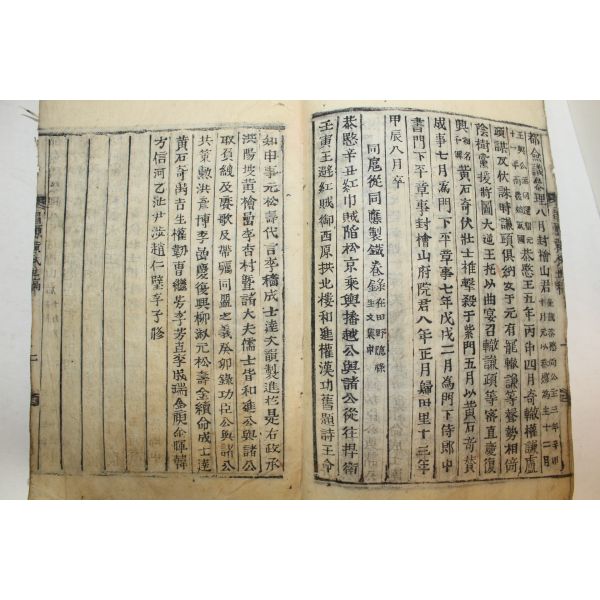 都僉議參理八月封檜山君
恭愍王五年丙申四月奇轍權謙盧
頙謀及伏誅時謙頙俱納女于元有寵轍謙等聲勢相倚
陰樹黨援將圖大逆王托以曲宴召轍謙頙等審直慶復
興黃石奇伏壯士椎擊殺于紫門五月以黃石奇贊
成事七月爲門下平章事七年戊戌二月爲門下侍郎中
書門下平章事封檜山府院君八年正月歸田里十三年
甲辰八月卒
同扈從同應製鐵卷錄
恭愍辛丑紅巾賊陷松京乘輿播越公與諸公從往捍衛
壬寅王避紅賊御西原拱北樓和進權漢功舊題詩王命
知申事元松壽代言李穡成士達次韻製進於是右政承
洪陽坡黃檜嵒李杏村曁諸大夫儒士皆和進公與諸公
取頂縫及賡歌及帶礪同盟之義癸卯錄功臣公與諸公
共策勳洪彥博李嵒慶復興柳淑元松壽金續命成士達
黃石奇吉生權勳曹繼芳李芳直李成瑞金庾命暉韓
方信河乙沚尹趙仁璧李子脩